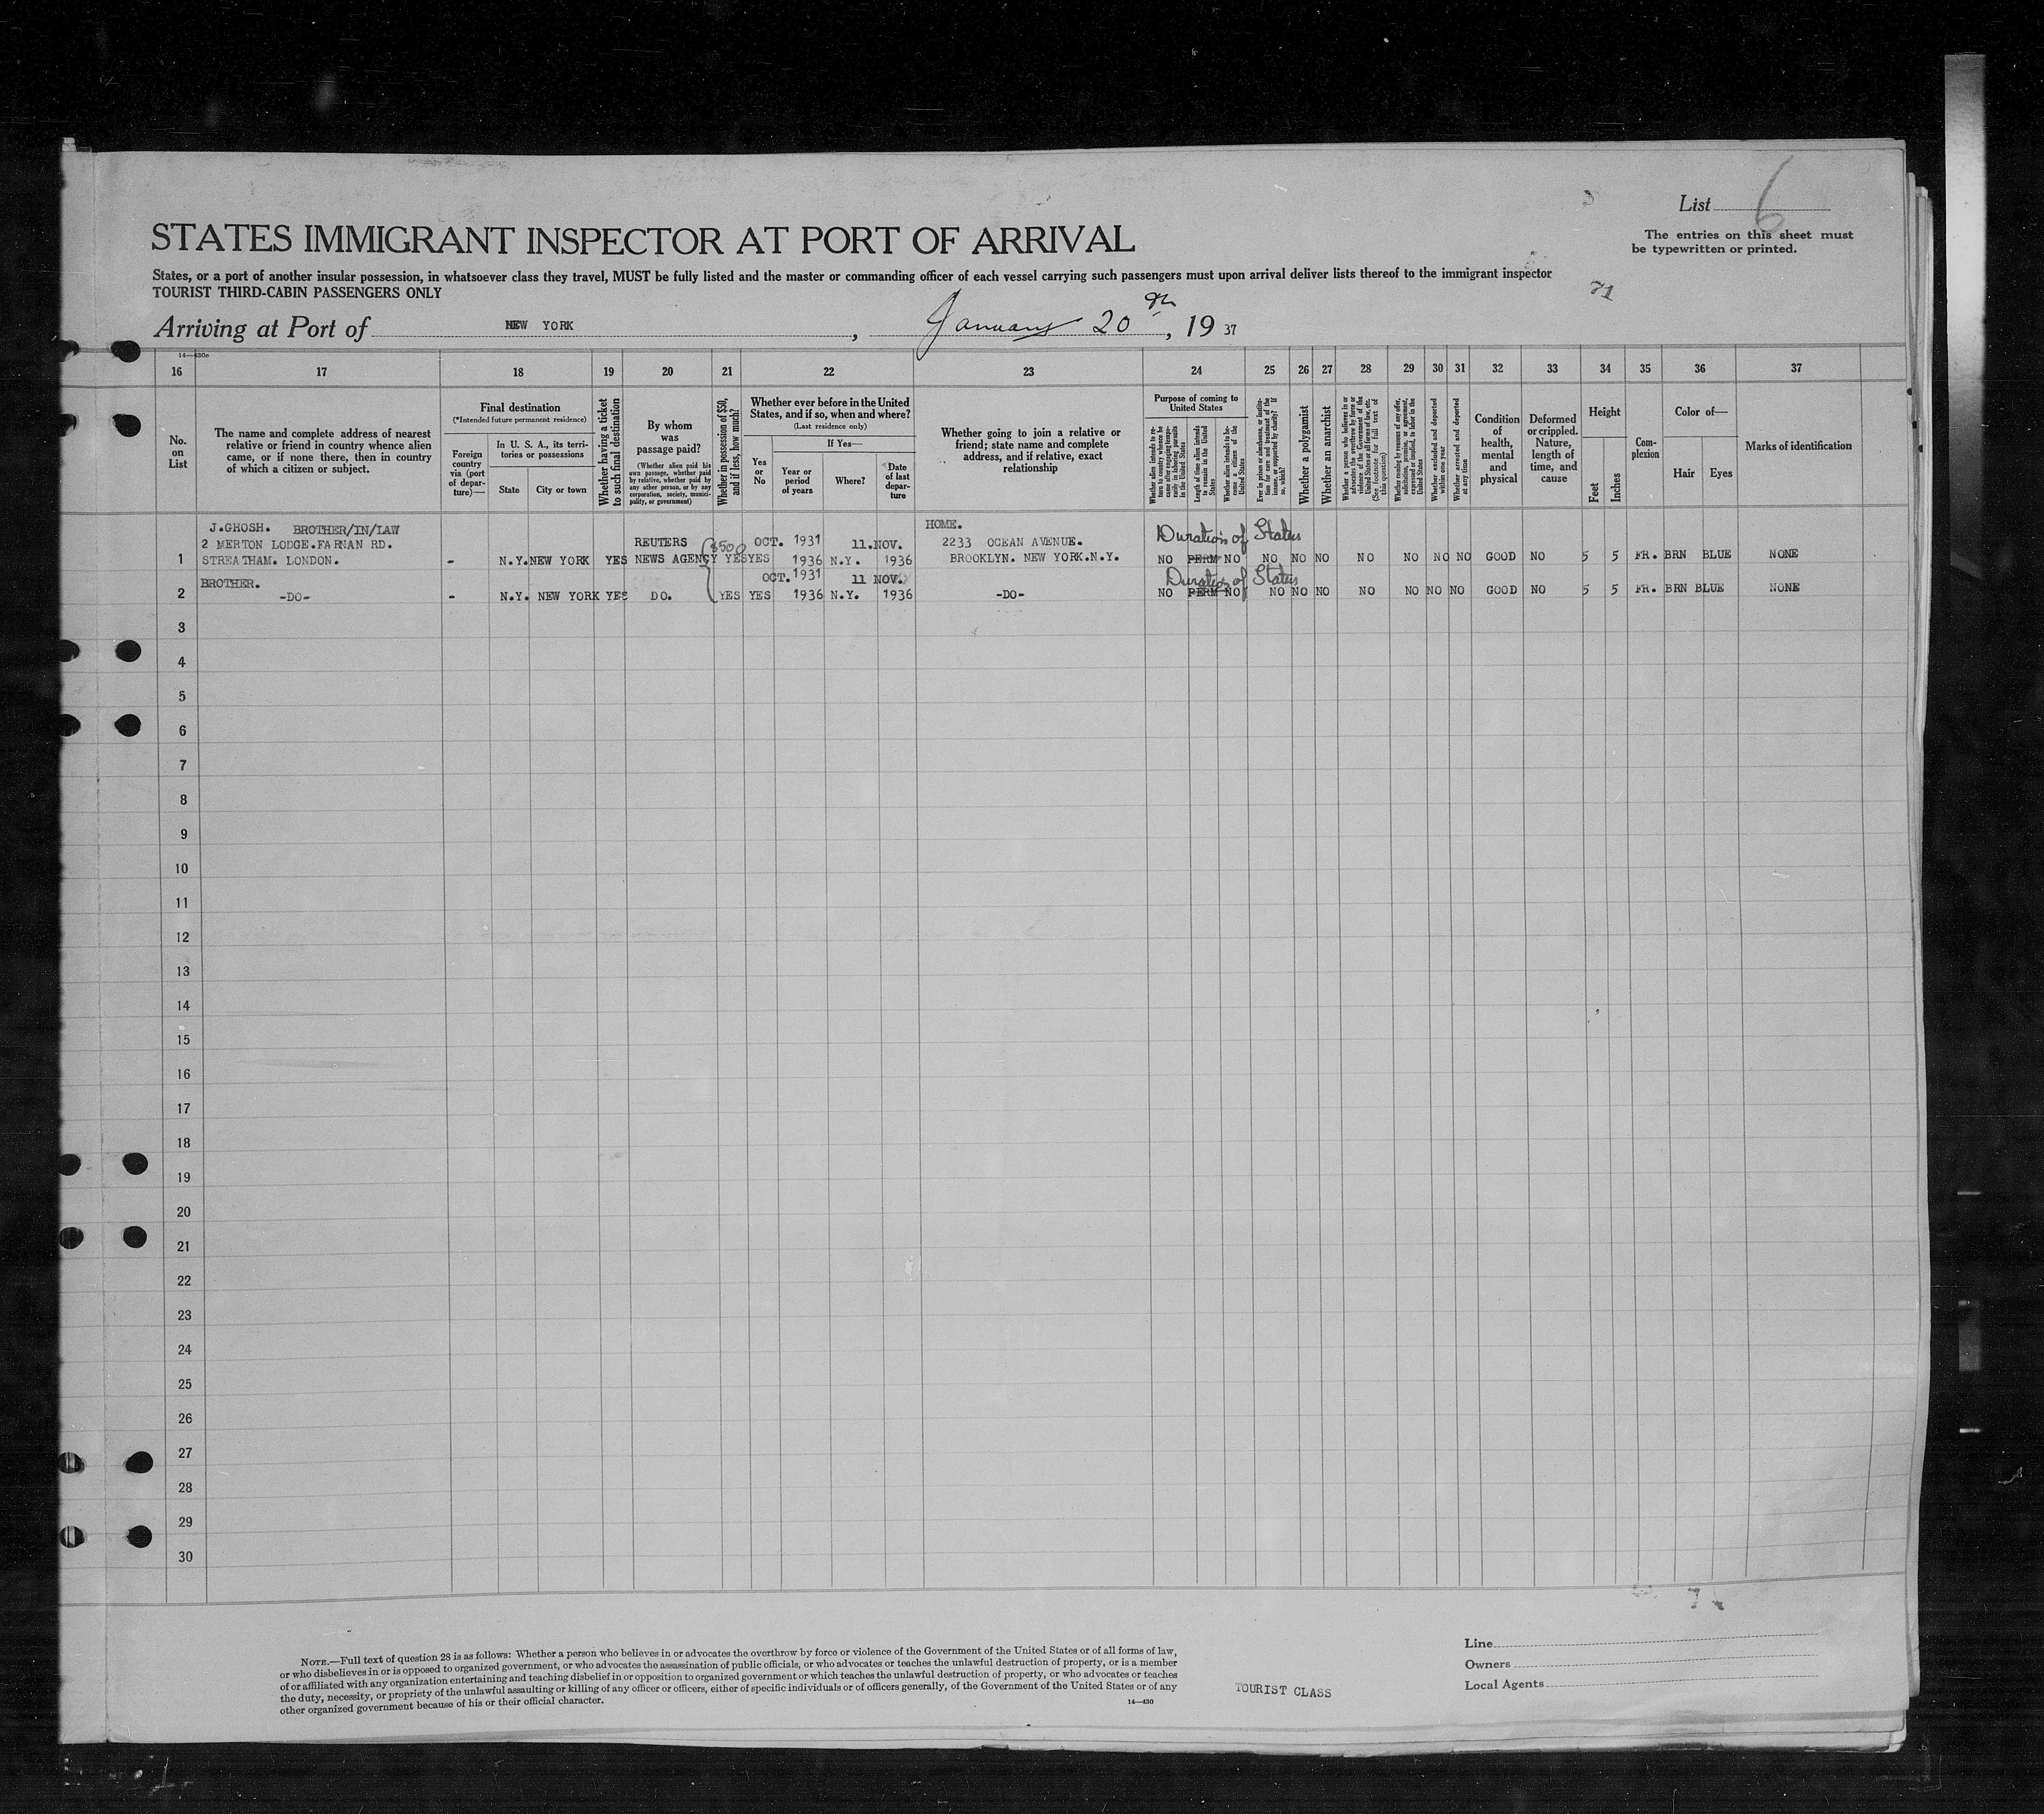 List 6
The entries on this sheet must
be typewritten or printed.
STATES IMMIGRANT INSPECTOR AT PORT OF ARRIVAL
States, or a port of another insular possession, in whatsoever class they travel, MUST be fully listed and the master or commanding officer of each vessel carrying such passengers must upon arrival deliver lists thereof to the immigrant inspector
TOURIST THIRD-CABIN PASSENGERS ONLY
71
Arriving at Port of NEW YORK, January 20th, 1937
14—430c
16 17 18 19 20 21 22 23 24 25 26 27 28 29 30 31 32 33 34 35 36 37
No.
on
List
The name and complete address of nearest
relative or friend in country whence alien
came, or if none there, then in country
of which a citizen or subject.
Final destination
(*Intended future permanent residence)
Foreign
country
via (port
of depar-
ture)—
In U. S. A., its terri-
tories or possessions
State
City or town
Whether having a ticket
to such final destination
By whom
was
passage paid?
(Whether alien paid his
own passage, whether paid
by relative, whether paid by
any other person, or by any
corporation, society, munici-
pality, or government)
Whether in possession of $50,
and if less, how much?
Whether ever before in the United
States, and if so, when and where?
(Last residence only)
Yes
or
No
If Yes—
Year or
period
of years
Where?
Date
of last
depar-
ture
Whether going to join a relative or
friend; state name and complete
address, and if relative, exact
relationship
Purpose of coming to
United States
Whether alien intends to re-
turn to country whence he
came after engaging tempo-
rarily in laboring pursuits
in the United States
Length of time alien intends
to remain in the United
States
Whether alien intends to be-
come a citizen of the
United States
Ever in prison or almshouse, or institu-
tion for care and treatment of the
insane, or supported by charity? If
so, which?
Whether a polygamist
Whether an anarchist
Whether a person who believes in or
advocates the overthrow by force or
violence of the Government of the
United States or all forms of law, etc.
(See footnote for full text of
this question)
Whether coming by reason of any offer,
solicitation, promise, or agreement,
expressed or implied, to labor in the
United States
Whether excluded and deported
within one year
Whether arrested and deported
at any time
Condition
of
health,
mental
and
physical
Deformed
or crippled.
Nature,
length of
time, and
cause
Height
Feet
Inches
Com-
plexion
Color of—
Hair
Eyes
Marks of identification
J.GHOSH. BROTHER/IN/LAW HOME.
2 MERTON LODGE.FARNAN RD. REUTERS $500 OCT. 1931 11.NOV. 2233 OCEAN AVENUE. Duration of Status
1 STREATHAM. LONDON. - N.Y. NEW YORK YES NEWS AGENCY YES YES 1936 N.Y. 1936 BROOKLYN. NEW YORK.N.Y. NO PERM NO NO NO NO NO NO NO NO GOOD NO 5 5 FR. BRN BLUE NONE
BROTHER. OCT. 1931 11 NOV. Duration of Status
2 -DO- - N.Y. NEW YORK YES DO. YES YES 1936 N.Y. 1936 -DO- NO PERM NO NO NO NO NO NO NO NO GOOD NO 5 5 FR. BRN BLUE NONE
3
4
5
6
7
8
9
10
11
12
13
14
15
16
17
18
19
20
21
22
23
24
25
26
27
28
29
30
NOTE.—Full text of question 28 is as follows: Whether a person who believes in or advocates the overthrow by force or violence of the Government of the United States or of all forms of law,
or who disbelieves in or is opposed to organized government, or who advocates the assassination of public officials, or who advocates or teaches the unlawful destruction of property, or is a member
of or affiliated with any organization entertaining and teaching disbelief in or opposition to organized government or which teaches the unlawful destruction of property, or who advocates or teaches
the duty, necessity, or propriety of the unlawful assaulting or killing of any officer or officers, either of specific individuals or of officers generally, of the Government of the United States or of any
other organized government because of his or their official character.
14—430
TOURIST CLASS
Line
Owners
Local Agents